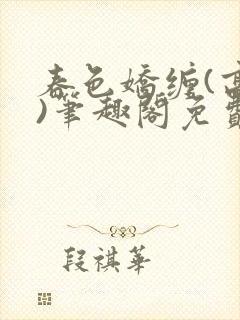 春色嬌纏(高
)筆趣閣免費
段祺華